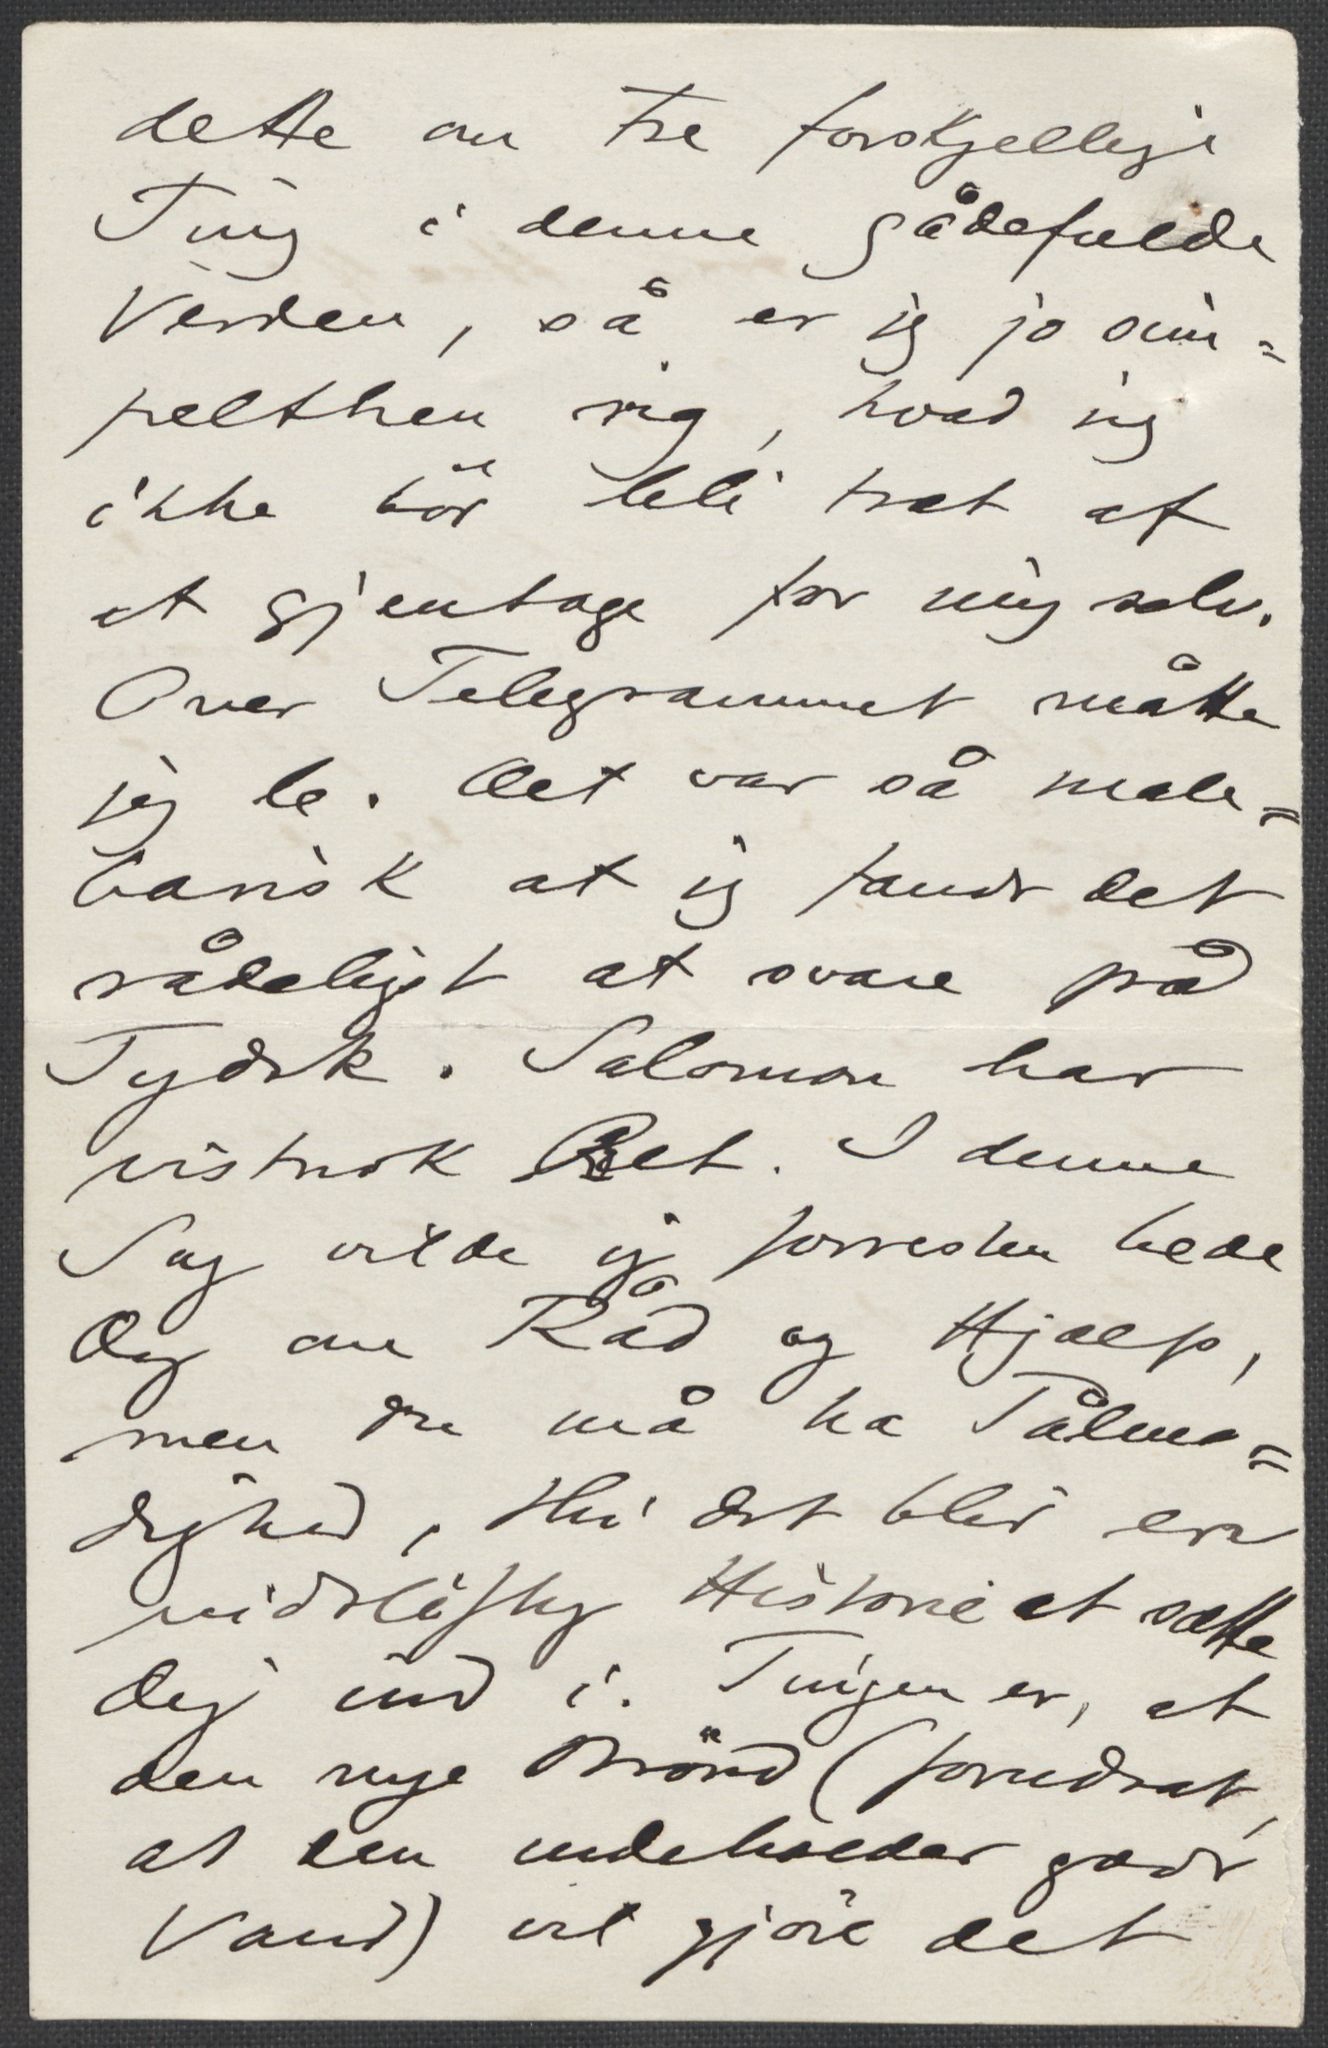 dette om tre forskjellige
Ting i denne gådefulde
Verden, så er jeg jo sim=
pelthen rig, hvad jeg
ikke bör bli træt af
at gjentage for mig selv.
Over Telegrammet måtte
jeg le. Det var så mala=
barisk at jeg fandt det
rådeligst at svare på
Tydsk. Salomon har
vistnok Ret. I denne
Sag vilde jeg forresten bede
Dig om Råd og Hjælp,
men du må ha Tålmo=
dighed, thi det blir en
vidtlöftig Historie at sætte
Dig ind i. Tingen er, at
den nye Brönd (forudsat,
at den indeholder godt
Vand) vil gjöre det